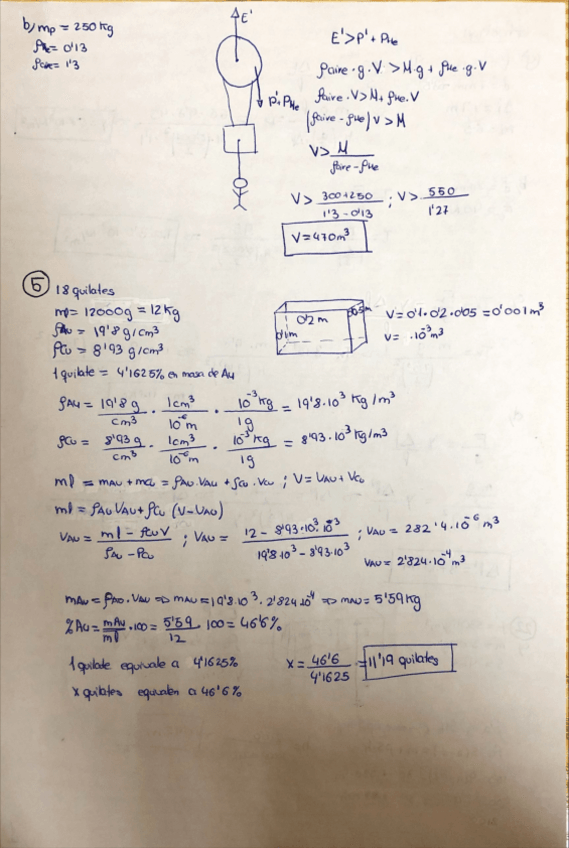 b) mp = 250 kg
ρHe = 0'13
ρaire = 1'3
E'
P' + PHe
E' > P' + PHe
ρaire · g · V > M · g + ρHe · g · V
ρaire · V > M + ρHe · V
(ρaire - ρHe) V > M
V > M / ρaire - ρHe
V > 300 + 250 / 1'3 - 0'13 ; V > 550 / 1'27
V = 470 m³
5 18 quilates
ml = 12000 g = 12 kg
ρAu = 19'8 g/cm³
ρCu = 8'93 g/cm³
0'2 m
0'1 m
V = 0'1 · 0'2 · 0'05 = 0'001 m³
V = · 10⁻³ m³
1 quilate = 4'1625% en masa de Au
ρAu = 19'8 g / cm³ · 1 cm³ / 10⁻⁶ m · 10⁻³ kg / 1 g = 19'8 · 10³ kg/m³
ρCu = 8'93 g / cm³ · 1 cm³ / 10⁻⁶ m · 10⁻³ kg / 1 g = 8'93 · 10³ kg/m³
ml = mAu + mCu = ρAu · VAu + ρCu · VCu ; V = VAu + VCu
ml = ρAu VAu + ρCu (V - VAu)
VAu = ml - ρCu V / ρAu - ρCu ; VAu = 12 - 8'93 · 10³ · 10⁻³ / 19'8 · 10³ - 8'93 · 10³ ; VAu = 282'4 · 10⁻⁶ m³
VAu = 2'824 · 10⁻⁴ m³
mAu = ρAu · VAu => mAu = 19'8 · 10³ · 2'824 · 10⁻⁴ => mAu = 5'59 kg
% Au = mAu / ml · 100 = 5'59 / 12 · 100 = 46'6 %
1 quilate equivale a 4'1625%
x quilates equivalen a 46'6 %
x = 46'6 / 4'1625 = 11'19 quilates